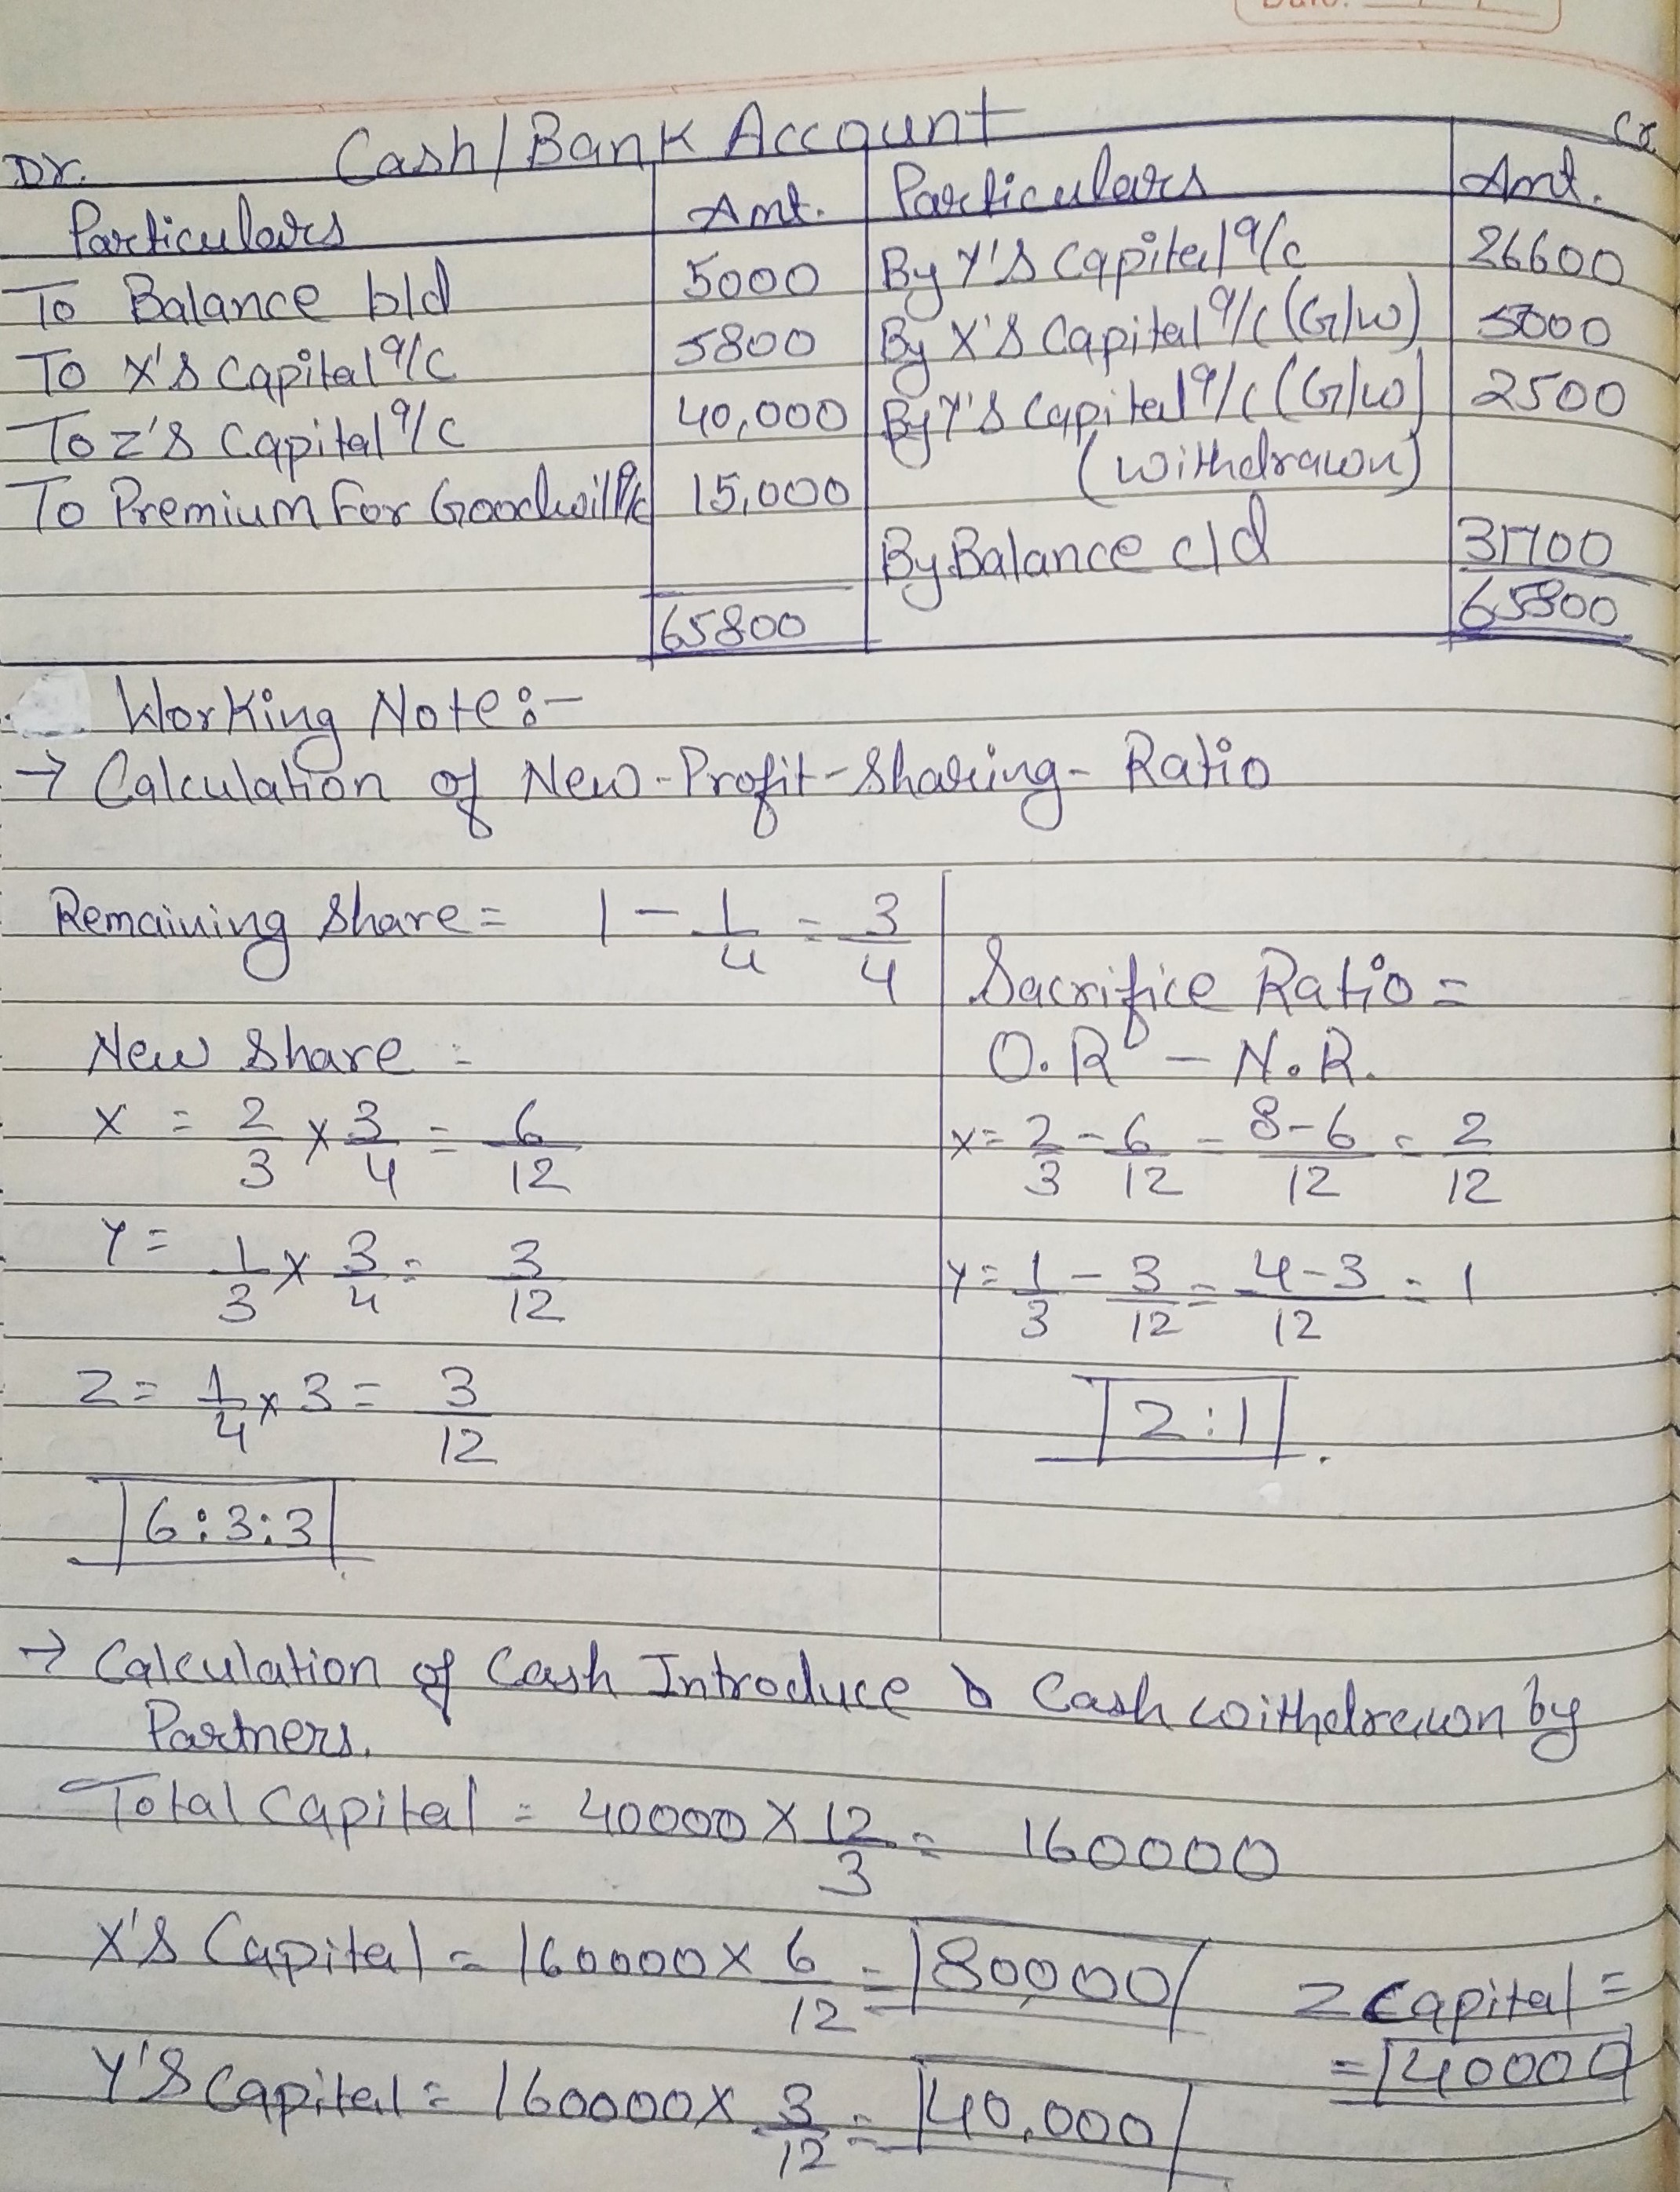 Date:
Dr. Cash/Bank Account Cr.
Particulars Amt. Particulars Amt.
To Balance b/d 5000 By Y's Capital a/c 26600
To X's Capital a/c 5800 By X's Capital a/c (G/w) 5000
To Z's Capital a/c 40,000 By Y's Capital a/c (G/w) 2500
(withdrawn)
To Premium for Goodwill a/c 15,000
By Balance c/d 31700
65800 65800
Working Note:-
→ Calculation of New-Profit-Sharing-Ratio
Remaining Share = 1 - 1/4 = 3/4
New Share =
X = 2/3 × 3/4 = 6/12
Y = 1/3 × 3/4 = 3/12
Z = 1/4 × 3 = 3/12
6:3:3
Sacrifice Ratio =
O.R - N.R.
X = 2/3 - 6/12 = 8-6/12 = 2/12
Y = 1/3 - 3/12 = 4-3/12 = 1
2:1
→ Calculation of Cash Introduce & Cash withdrawn by
Partners.
Total Capital = 40000 × 12/3 = 160000
X's Capital = 160000 × 6/12 = 80,000
Z Capital =
= 40000
Y's Capital = 160000 × 3/12 = 40,000